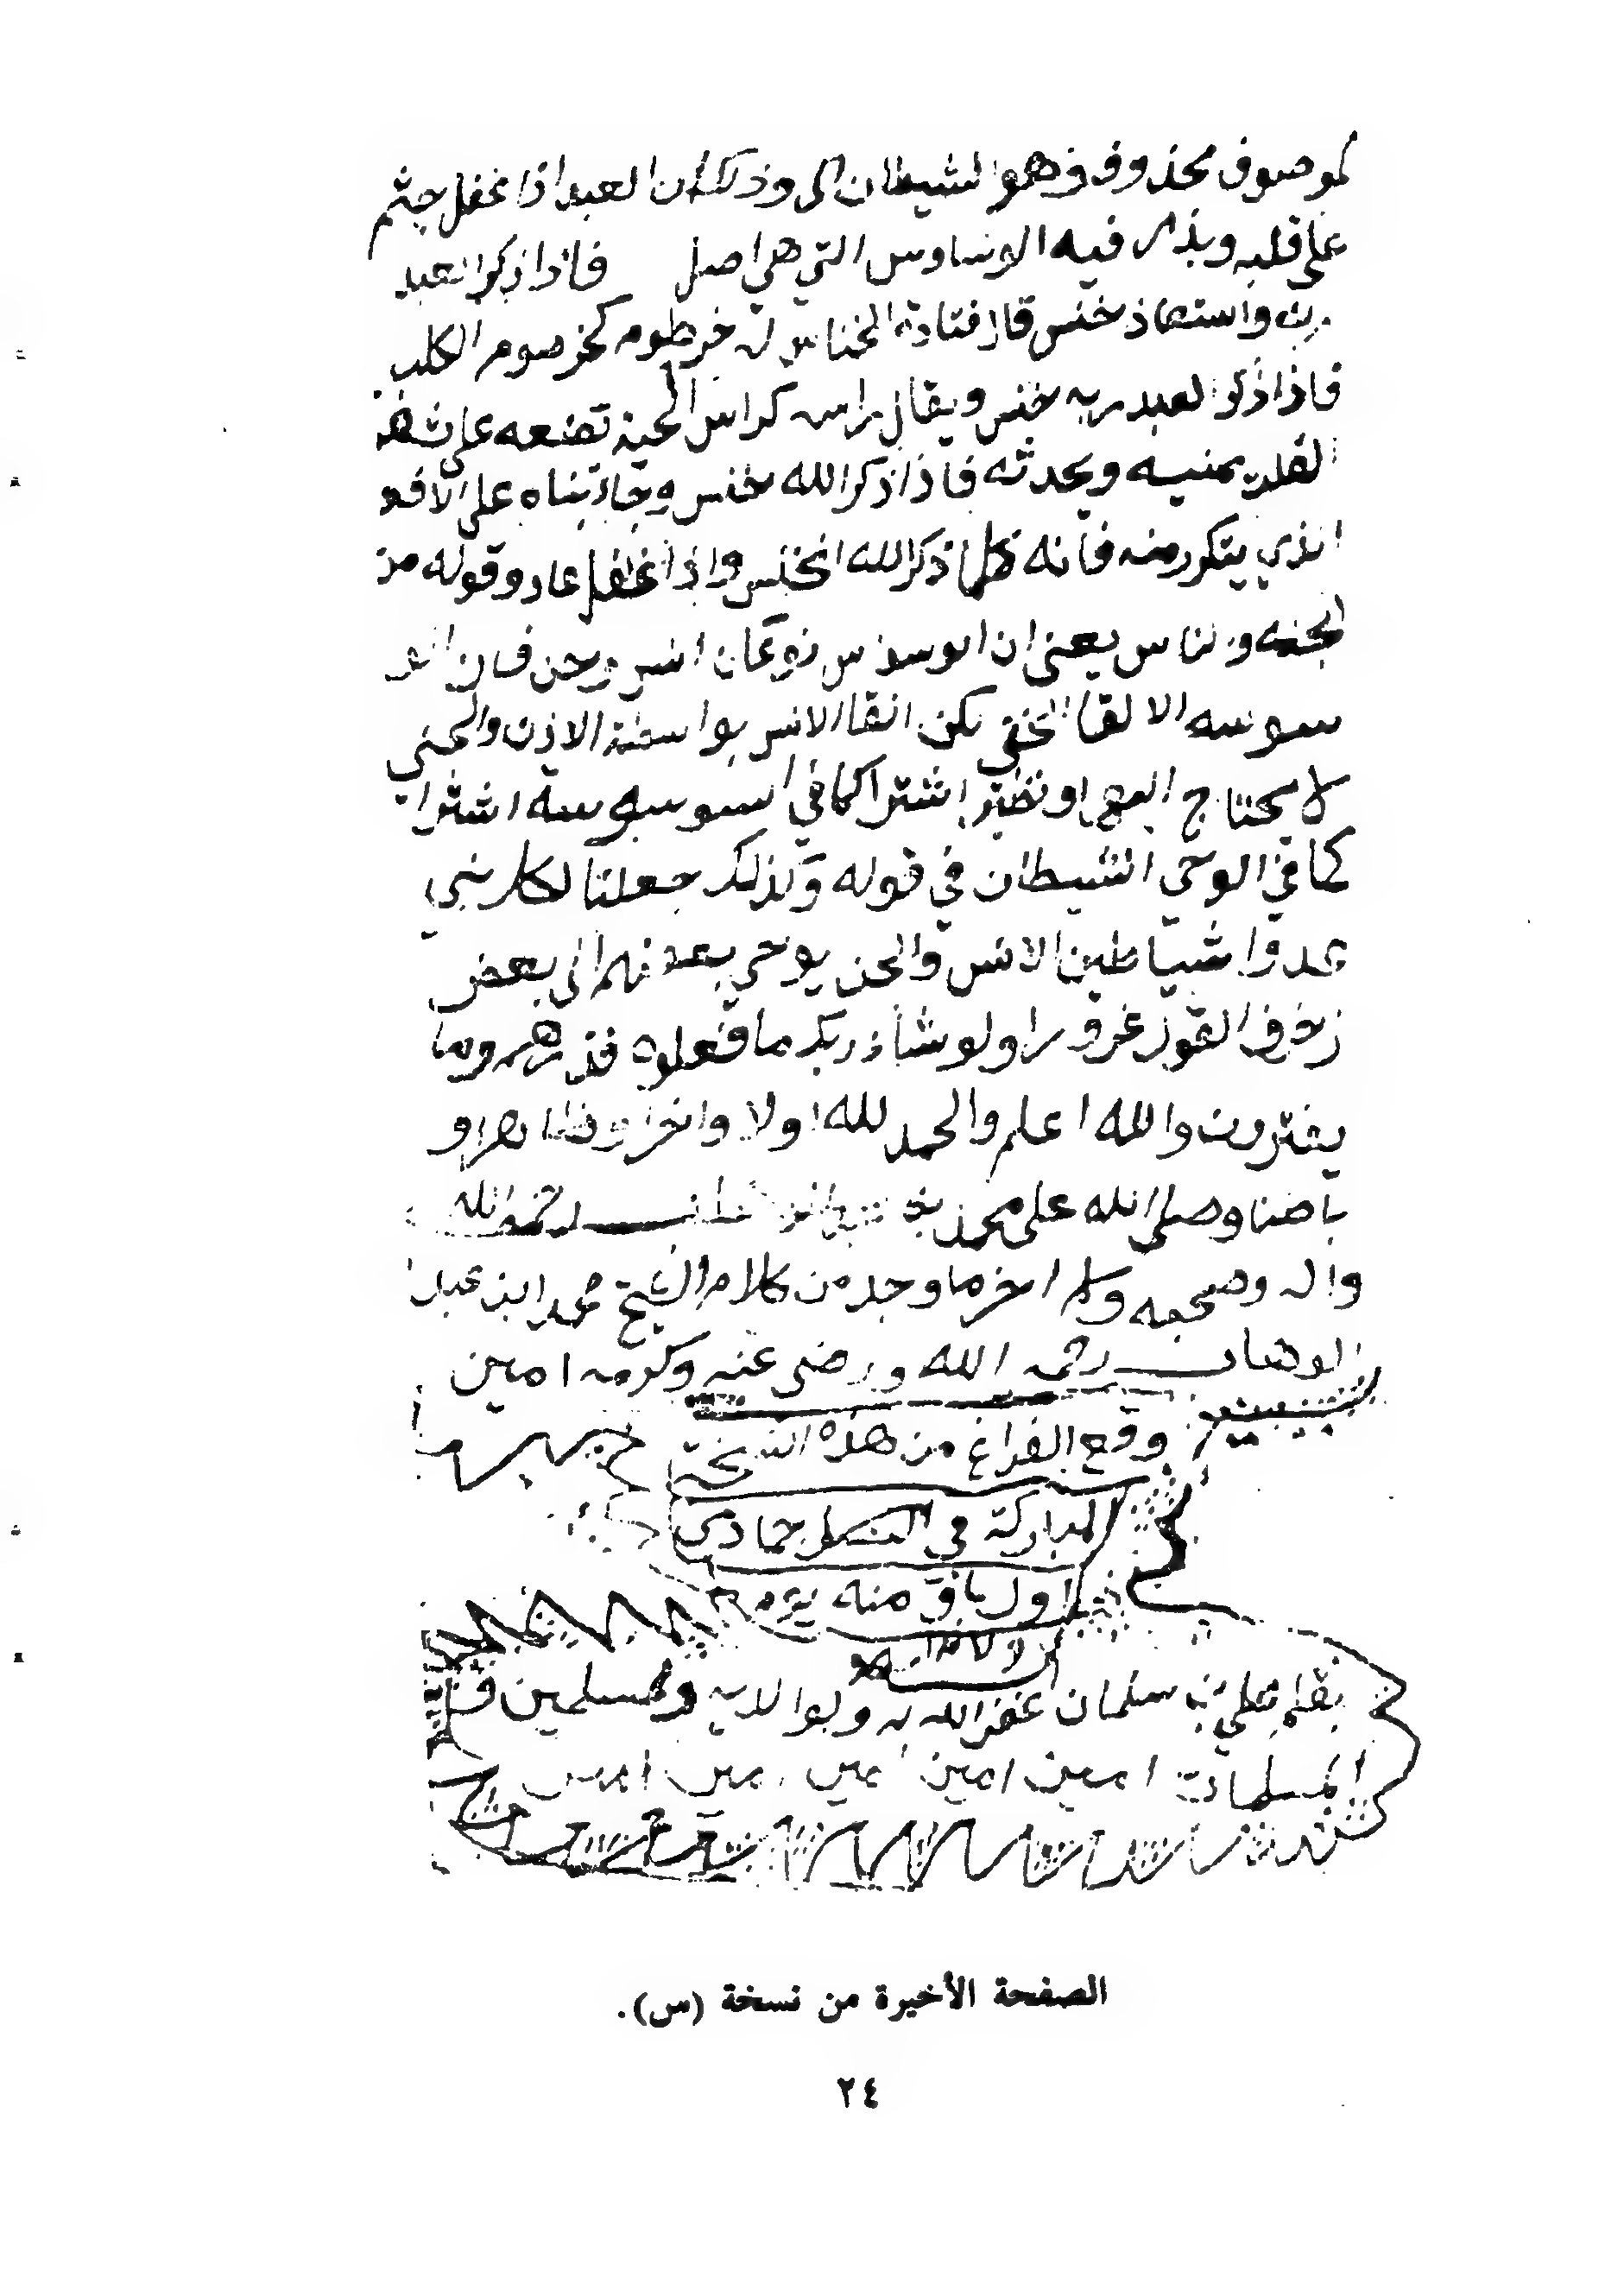 لموصوف محذوف وهو الشيطان الى وذلك ان العبد اذا غفل جثم
على قلبه وبذر فيه الوساوس التي هي اصل فاذا ذكر العبد
ربه واستعاذ خنس قال قتادة الخناس له خرطوم كخرصوم الكلب
فاذا ذكر العبد ربه خنس ويقال راسه كراس الحية تضعه على
القلب يمنيه ويحدثه فاذا ذكر الله خنس وجاء بناه على
الذي يتكرر منه فانه كلما ذكر الله انخنس واذا غفل عاد وقوله من
الجنه والناس يعني ان الوسواس نوعان انس وجن فان
الالقا الخفي لكن القا الانس بواسطة الاذن والجني
لا يحتاج اليها ونظير اشتراكما في
كما في الوحي الشيطان في قوله وكذلك جعلنا لكل نبي
عدوا شياطين الانس والجن يوحي بعضهم الى بعض
زخرف القول غرورا ولو شاء ربك ما فعلوه فذرهم وما
يفترون والله اعلم والحمد لله اولا واخرا وظاهرا و
باطنا وصلى الله على محمد
واله وصحبه وسلم اخر ما وجد من كلام الشيخ محمد ابن عبد
الوهاب رحمه الله ورضي عنه وكرمه امين
وقع الفراغ من هذه النسخة
المباركة في جمادى
اول باق منه يوم
بقلم علي بن سلمان غفر الله له ولوالديه والمسلمين
المسلمات امين امين امين امين امين
الصفحة الأخيرة من نسخة (س).
٢٤